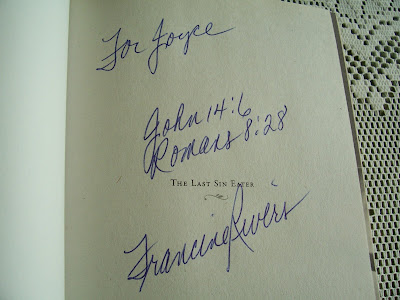 For Joyce
John 14:6
Romans 8:28
THE LAST SIN EATER
Francine Rivers